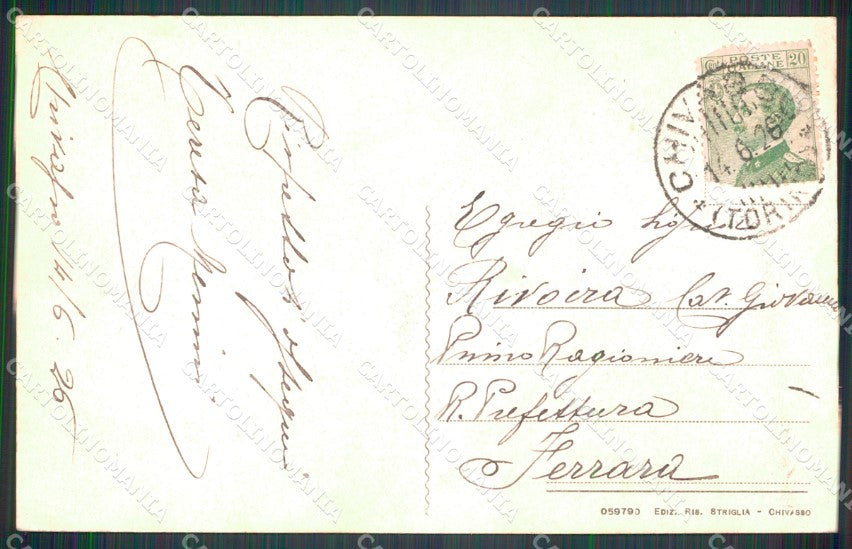 Chivasso 14/6.26
Rispettosi ossequi
Teresa
POSTE
ITALIANE
20
CHIVASSO
14.6.26
(TORINO)
Egregio Sig.
Rivoira Cav. Giovanni
Primo Ragioniere
R. Prefettura
Ferrara
059790 EDIZ. RIS. STRIGLIA - CHIVASSO
CARTOLINOMANIA